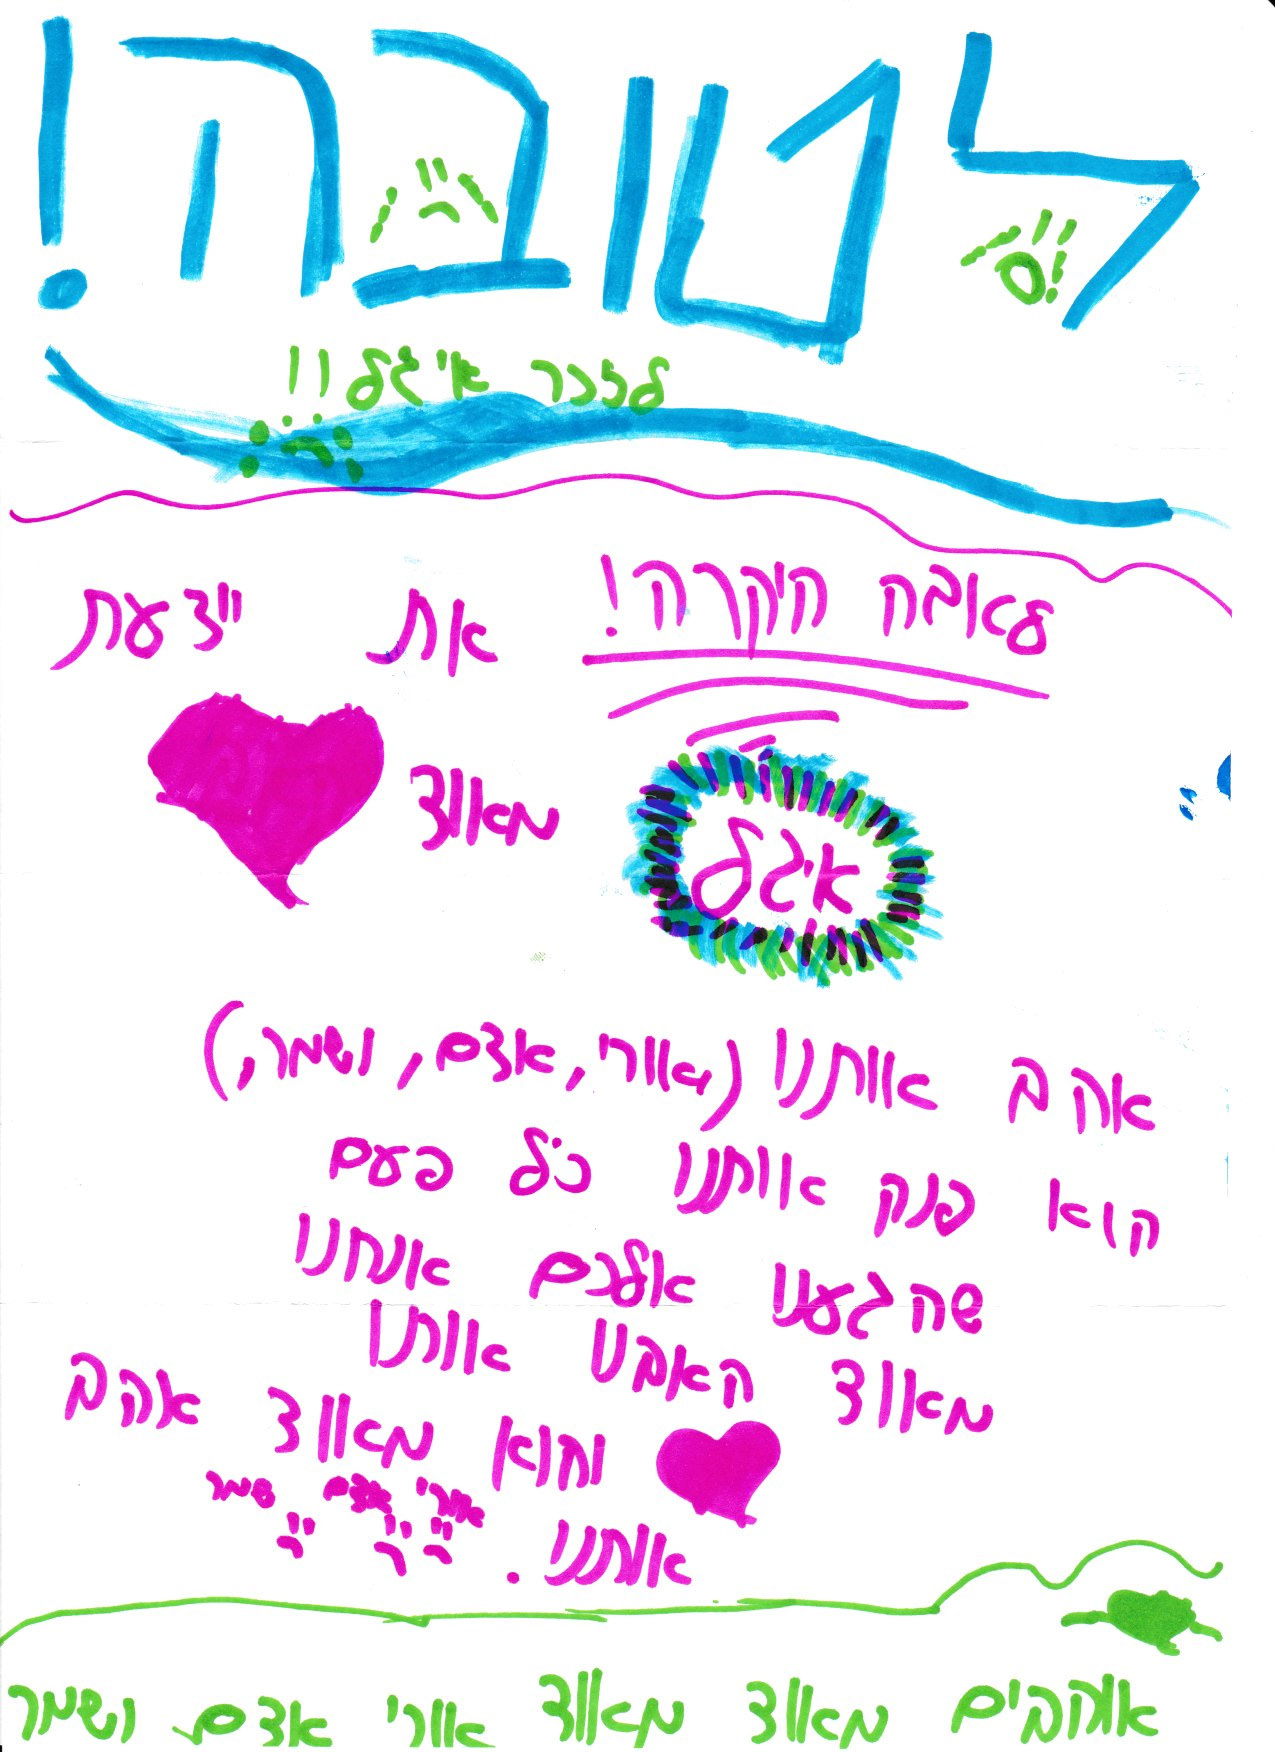 לטובה!
לזכר איגל!!
טאובה היקרה! את יידעת
איגל מאווד
אהב אוותנו (אוורי, אדם, ושמר,)
הוא פנק אוותנו כל פעם
שהגענו אלכם אנחנו
מאווד האבנו אוותו
והוא מאווד אהב
אוותנו. אוורי אדם שמר
אוהבים מאווד מאווד אורי אדם ושמר